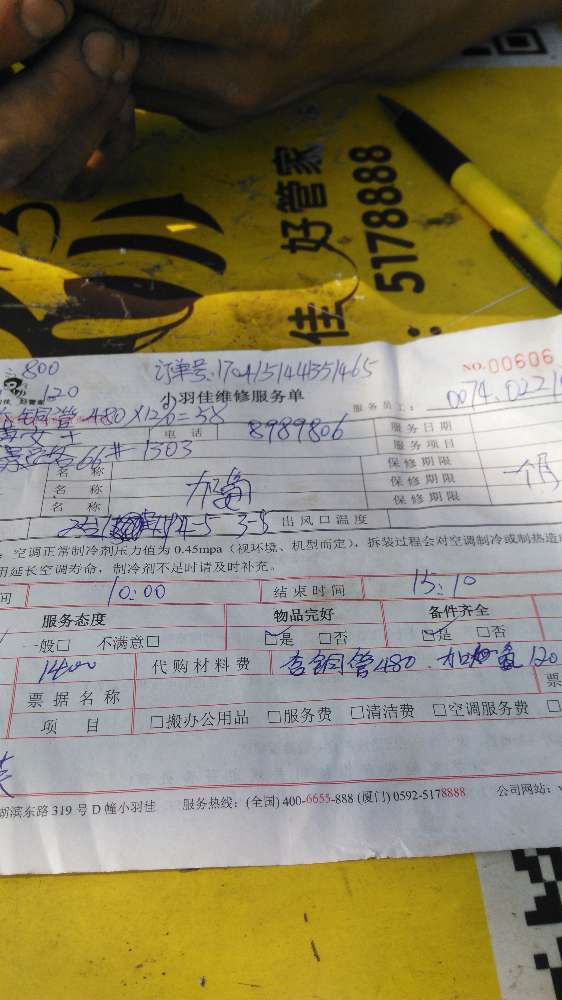 好管家
佳
5178888
800
120
订单号:170415144351465
NO.00606
小羽佳维修服务单
服务员工:
0074.0221
铜管 480
电话
8989806
服务日期
66# 1503
服务项目
名称
保修期限
名称
加氟
保修期限
一个月
名称
保修期限
出风口温度
空调正常制冷剂压力值为 0.45mpa(视环境、机型而定),拆装过程会对空调制冷或制热造
用延长空调寿命,制冷剂不足时请及时补充。
间
10:00
结束时间
15:10
服务态度
物品完好
备件齐全
般□ 不满意□
☑是 □否
☑是 □否
1400
代购材料费
含铜管480.加氟120
票
票据名称
项目
□搬办公用品 □服务费 □清洁费 □空调服务费 □
湖滨东路 319 号 D 幢小羽佳 服务热线:(全国) 400-6655-888 (厦门) 0592-5178888 公司网站: